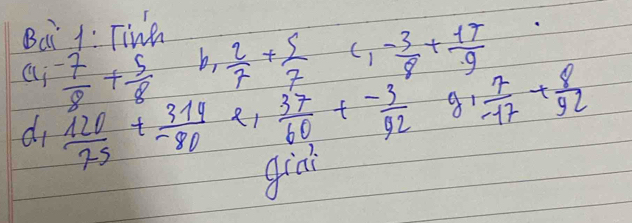 Bài 1: Tính
a, -7/8 + 5/8 b, 2/7 + 5/7 c, -3/8 + 17/9
d, 120/75 + 314/-80 e, 37/60 + -3/92 g, 7/-17 + 8/92
giải